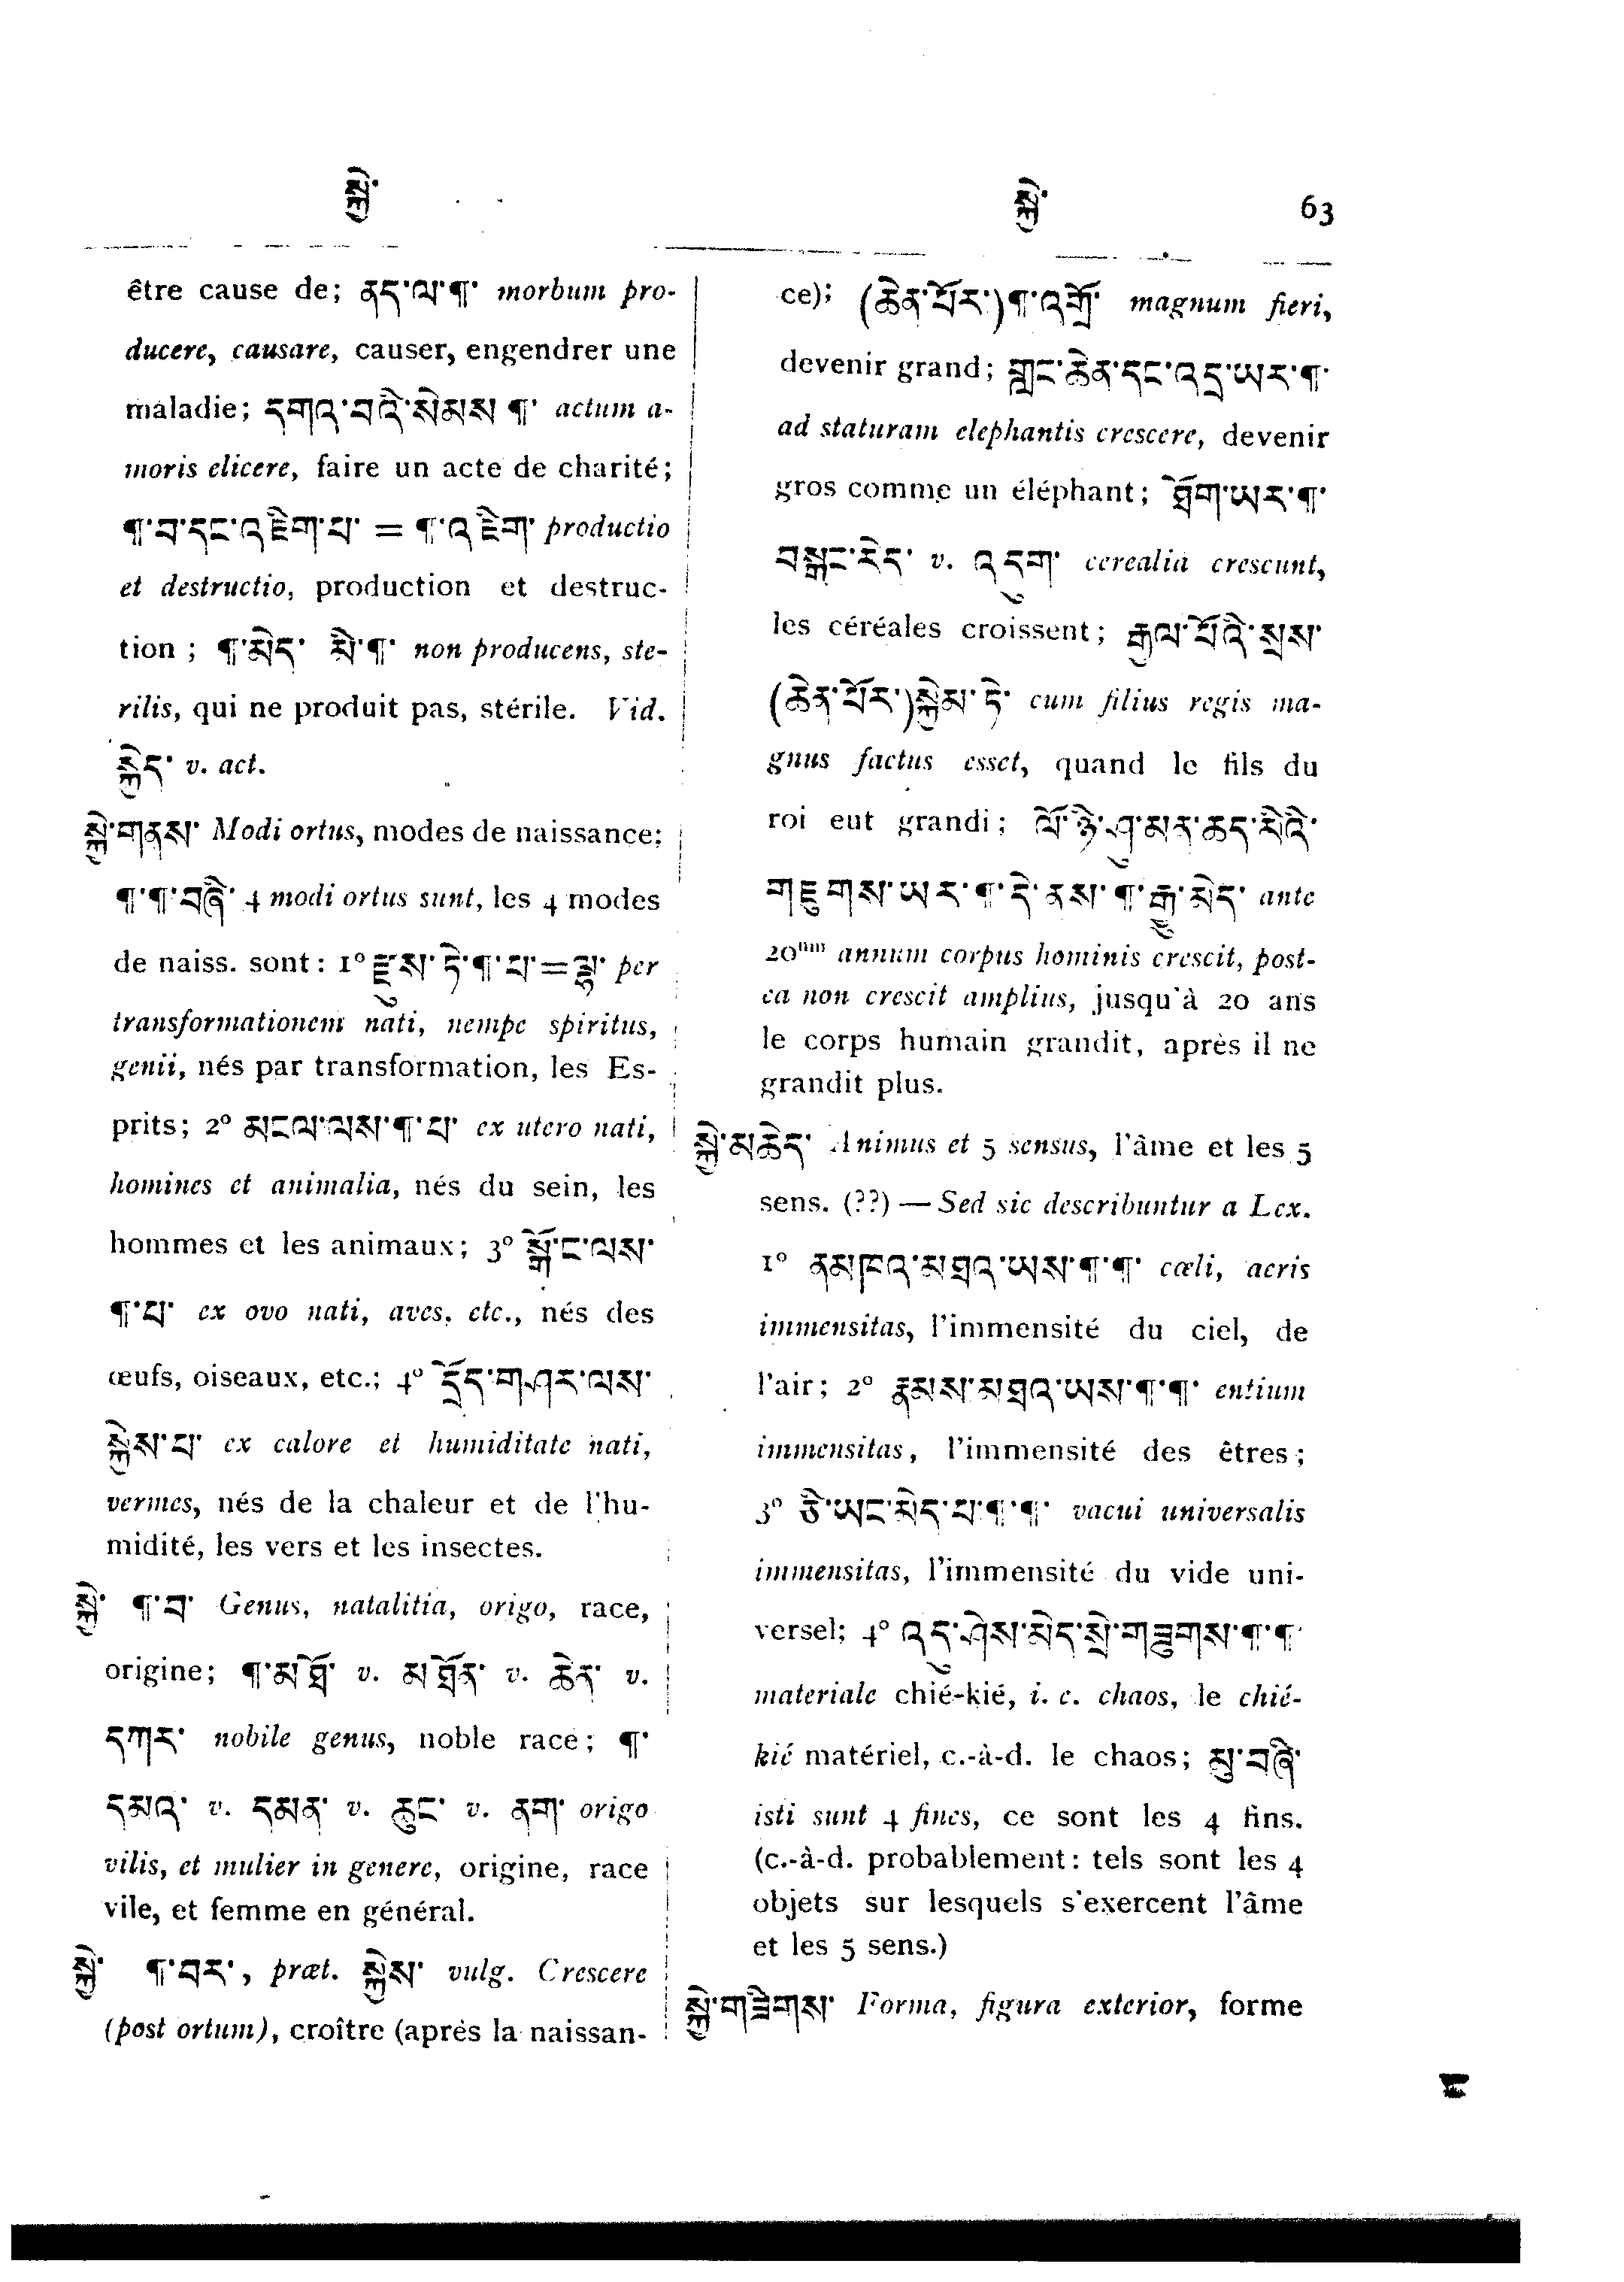 སྐྱེ་
སྐྱེ་ 63
être cause de; ནད་ལ་¶་ morbum pro-
ducere, causare, causer, engendrer une
maladie; དགའ་བའི་སེམས་¶་ actum a-
moris elicere, faire un acte de charité;
¶་བ་དང་འཇིག་པ་ = ¶་འཇིག་ productio
et destructio, production et destruc-
tion; ¶་མེད་ མི་¶་ non producens, ste-
rilis, qui ne produit pas, stérile. Vid.
སྐྱེད་ v. act.
སྐྱེ་གནས་ Modi ortus, modes de naissance;
¶་¶་བཞི་ 4 modi ortus sunt, les 4 modes
de naiss. sont: 1° རྫུས་ཏེ་¶་པ་=ལྷ་ per
transformationem nati, nempe spiritus,
genii, nés par transformation, les Es-
prits; 2° མངལ་ལས་¶་པ་ ex utero nati,
homines et animalia, nés du sein, les
hommes et les animaux; 3° སྒོ་ང་ལས་
¶་པ་ ex ovo nati, aves, etc., nés des
œufs, oiseaux, etc.; 4° དྲོད་གཤར་ལས་
སྐྱེས་པ་ ex calore et humiditate nati,
vermes, nés de la chaleur et de l'hu-
midité, les vers et les insectes.
སྐྱེ་ ¶་བ་ Genus, natalitia, origo, race,
origine; ¶་མཐོ་ v. མཐོན་ v. ཆེན་ v.
དཀར་ nobile genus, noble race; ¶་
དམའ་ v. དམན་ v. ཆུང་ v. ནག་ origo
vilis, et mulier in genere, origine, race
vile, et femme en général.
སྐྱེ་ ¶་བར་, præt. སྐྱེས་ vulg. Crescere
(post ortum), croître (après la naissan-
ce); (ཆེན་པོར་)¶་འགྲོ་ magnum fieri,
devenir grand; གླང་ཆེན་དང་འདྲ་ཡར་¶་
ad staturam elephantis crescere, devenir
gros comme un éléphant; ཐོག་ཡར་¶་
བསྐྱང་རེད་ v. འདུག་ cerealia crescunt,
les céréales croissent; རྒྱལ་པོའི་སྲས་
(ཆེན་པོར་)སྐྱེམ་ཏེ་ cum filius regis ma-
gnus factus esset, quand le fils du
roi eut grandi; ལོ་ཉི་ཤུ་མན་ཆད་མིའི་
གཟུགས་ཡར་¶་དེ་ནས་¶་རྒྱུ་མེད་ ante
20um annum corpus hominis crescit, post-
ea non crescit amplius, jusqu'à 20 ans
le corps humain grandit, après il ne
grandit plus.
སྐྱེ་མཆེད་ Animus et 5 sensus, l'âme et les 5
sens. (??) — Sed sic describuntur a Lex.
1° ནམཁའ་མཐའ་ཡས་¶་¶་ cœli, aeris
immensitas, l'immensité du ciel, de
l'air; 2° རྣམས་མཐའ་ཡས་¶་¶་ entium
immensitas, l'immensité des êtres;
3° ཅི་ཡང་མེད་པ་¶་¶་ vacui universalis
immensitas, l'immensité du vide uni-
versel; 4° འདུ་ཤེས་མེད་སྲེ་གཟུགས་¶་¶་
materiale chié-kié, i. e. chaos, le chié-
kié matériel, c.-à-d. le chaos; མུ་བཞི་
isti sunt 4 fines, ce sont les 4 fins.
(c.-à-d. probablement: tels sont les 4
objets sur lesquels s'exercent l'âme
et les 5 sens.)
སྐྱེ་གཟིགས་ Forma, figura exterior, forme